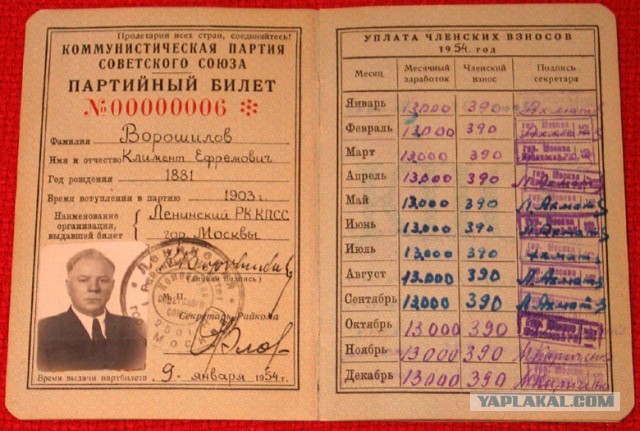 Пролетарии всех стран, соединяйтесь!
КОММУНИСТИЧЕСКАЯ ПАРТИЯ
СОВЕТСКОГО СОЮЗА
ПАРТИЙНЫЙ БИЛЕТ
№00000006
Фамилия Ворошилов
Имя и отчество Климент Ефремович
Год рождения 1881
Время вступления в партию 1903 г.
Наименование организации, выдавшей билет Ленинский РК КПСС
гор. Москвы
(личный подпись)
М. П.
Секретарь Райкома
Время выдачи партбилета 9 января 1954 г.
УПЛАТА ЧЛЕНСКИХ ВЗНОСОВ
1954 год
Месяц Месячный заработок Членский взнос Подпись секретаря
Январь 13,000 390
Февраль 13,000 390
Март 13,000 390
Апрель 13,000 390
Май 13,000 390
Июнь 13,000 390
Июль 13,000 390
Август 13,000 390
Сентябрь 13,000 390
Октябрь 13,000 390
Ноябрь 13,000 390
Декабрь 13,000 390
YAPLAKAL.COM